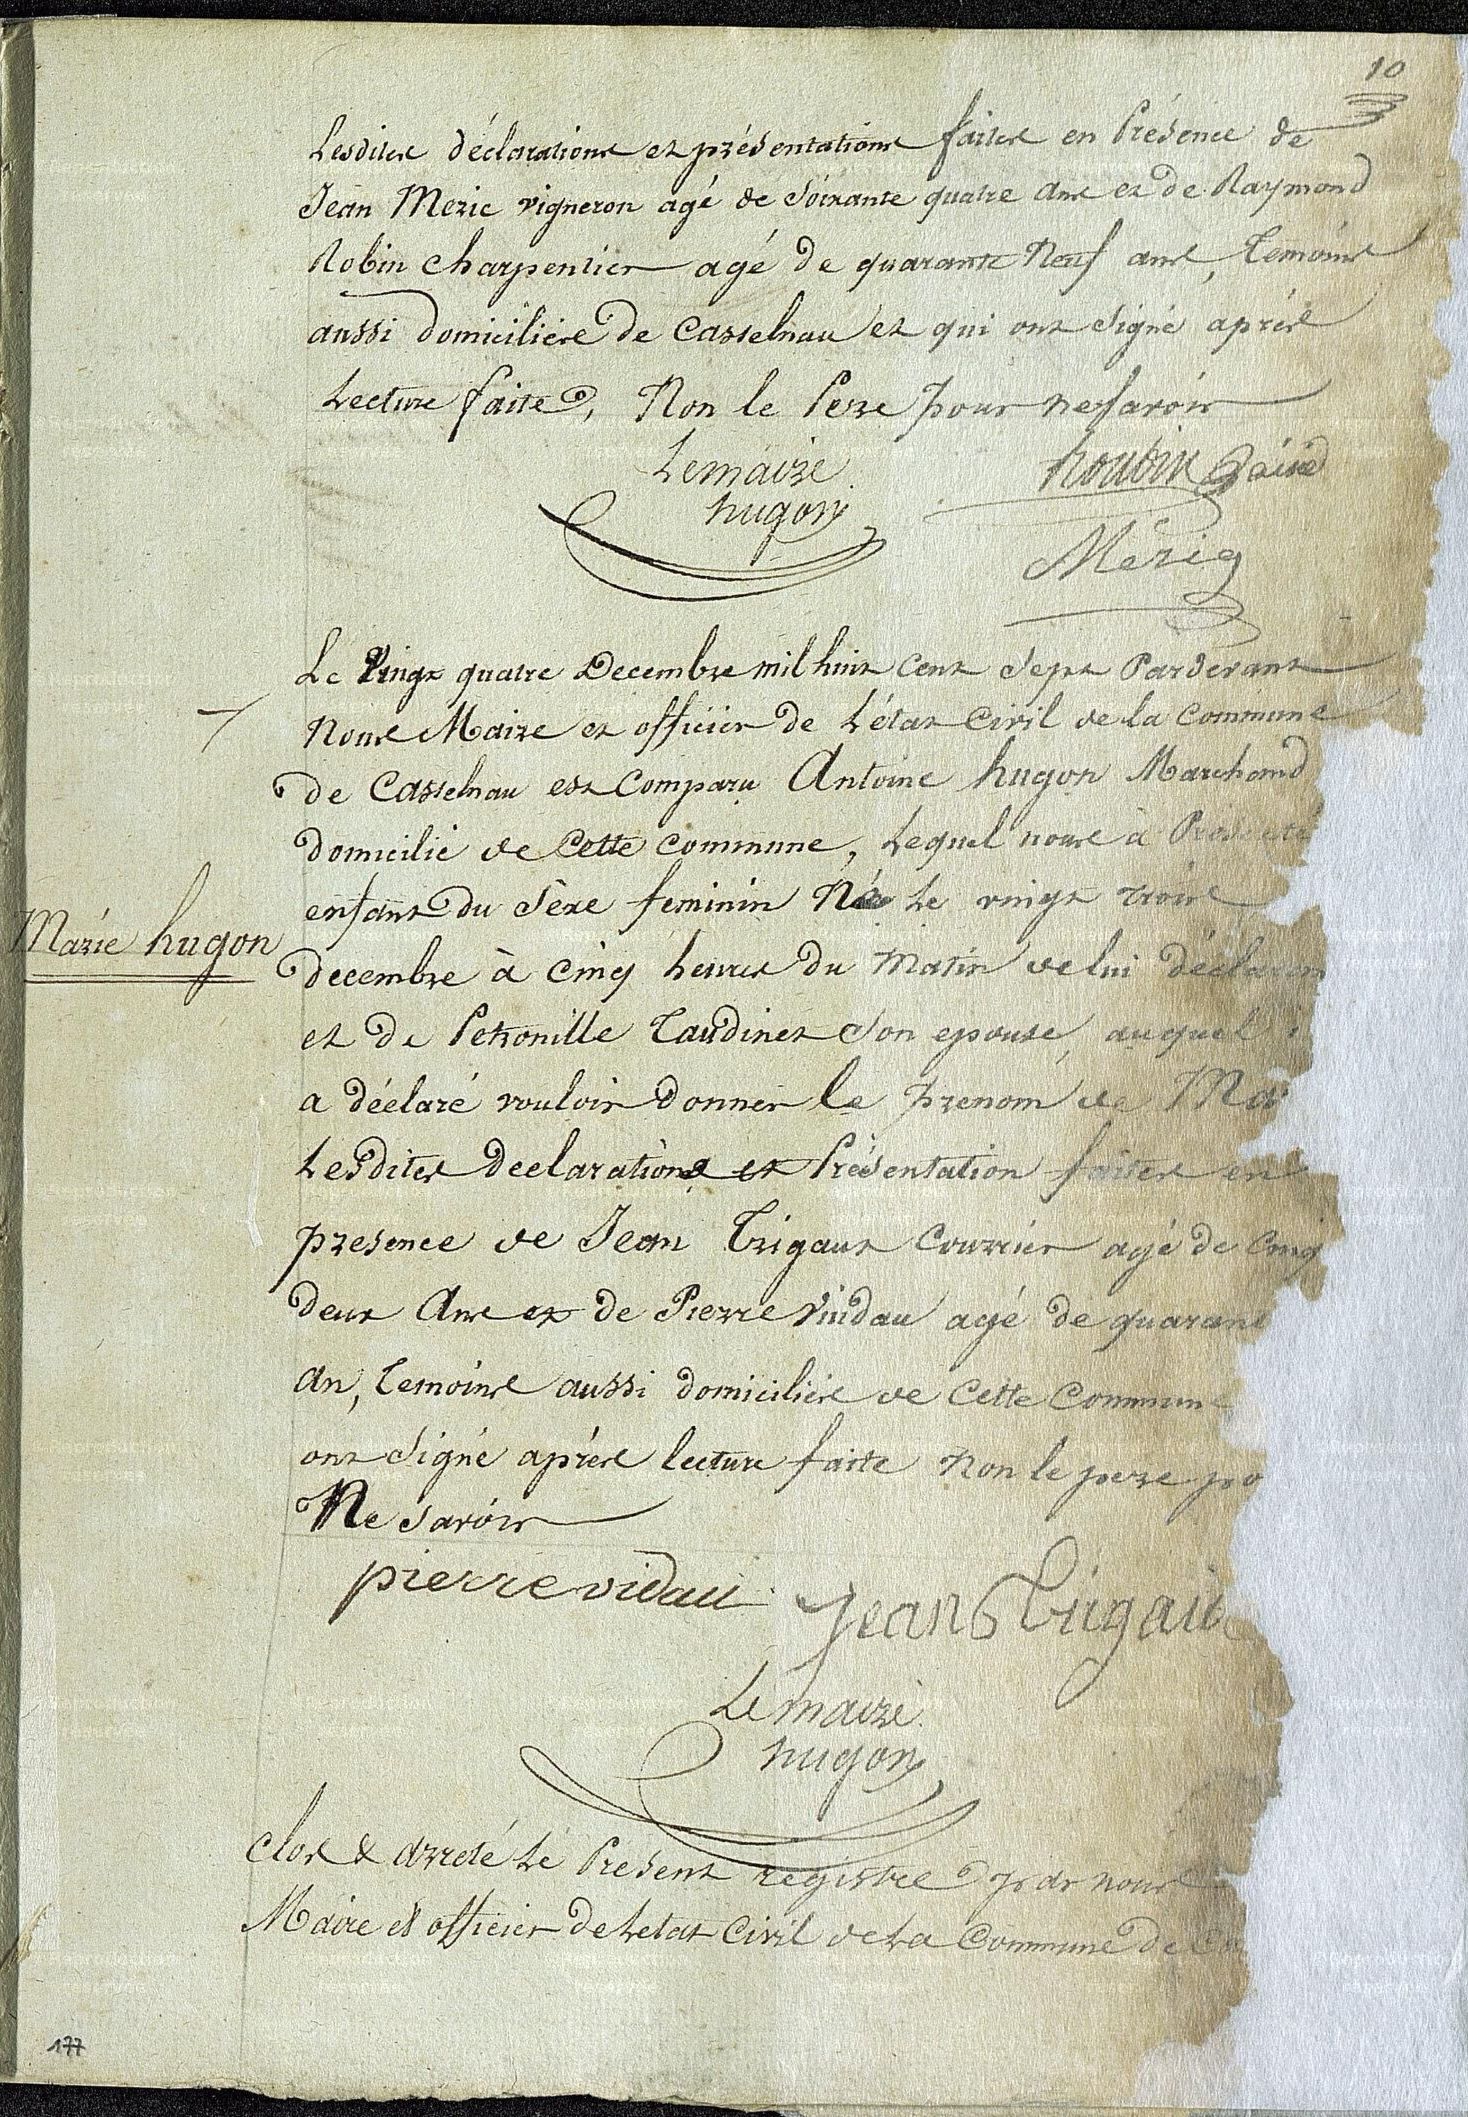 10
Lesdites déclarations et présentations faites en Présence de
Jean Meric vigneron agé de Soixante quatre ans et de Raymond
Robin charpentier agé de quarante Neuf ans, Temoins
aussi domiciliés de Casselnau et qui ont signé après
Lecture faite, Non le Pere pour ne savoir
Lemaire
hugon
Roubin ainé
Méric
Le Vingt quatre Decembre mil huit Cent Sept Pardevant
Nous Maire et officier de L'état Civil de la Commune
de Casselnau est Comparu Antoine hugon Marchand
domicilié de Cette commune, Lequel nous à
enfant du Sexe feminin Né Le vingt trois
Marie hugon
decembre à Cinq heures du Matin de lui déclarant
et de Petronille Taudinet Son epouse, auquel i
a déclaré vouloir donner le prenom de Mar
Lesdites declarations et Présentation faites en
presence de Jean Trigaut Courrier agé de Cinq
deux Ans et de Pierre Vindau agé de quarant
An, Temoins aussi domiciliés de Cette Commune
ont Signé après lecture faite Non le pere po
Ne Savoir
pierre vidau
Jean Trigait
Le maire
hugon
Clos & arreté Le Present registre par nous
Maire et officier de Letat Civil de La Commune de Ca
177